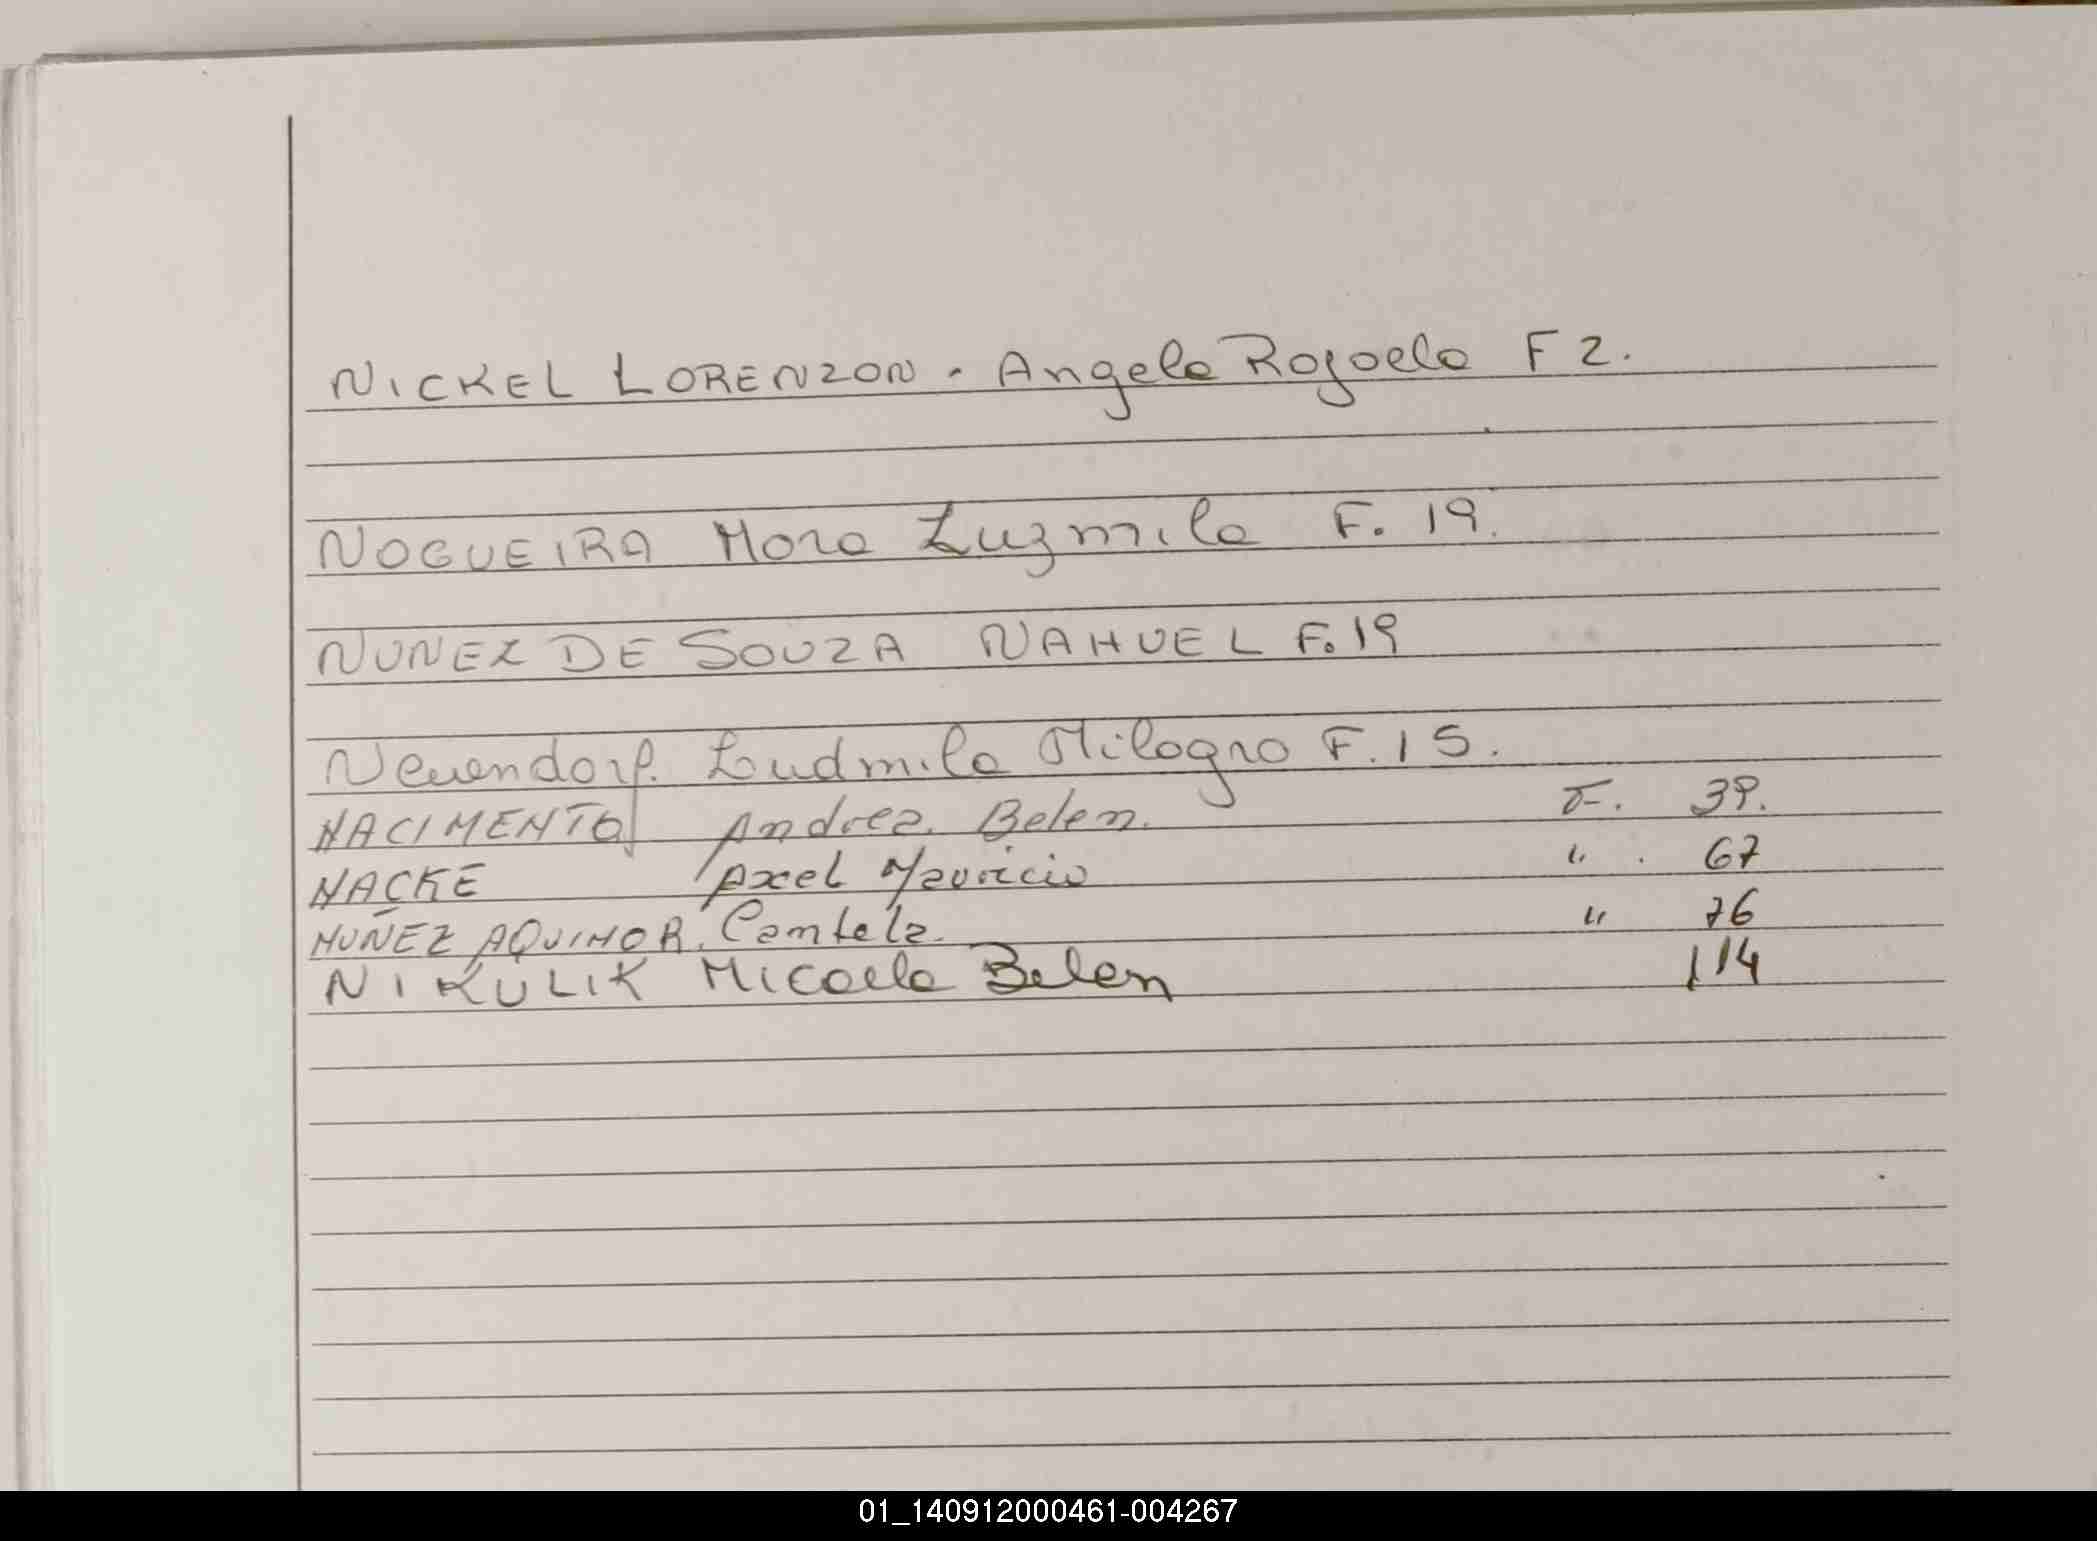 NICKEL LORENZON. Angela Rafaela F 2.
NOGUEIRA Mora Luzmila F. 19.
NUNEZ DE SOUZA NAHUEL F.19
Neuendorf. Ludmila Milagro F. 15.
NACIMENTO Andrea Belen. F. 39.
NACKE Axel Mauricio " . 67
NUÑEZ AQUINOR. Camtela. " 76
NIKULIK Micaela Belen 114
01_140912000461-004267